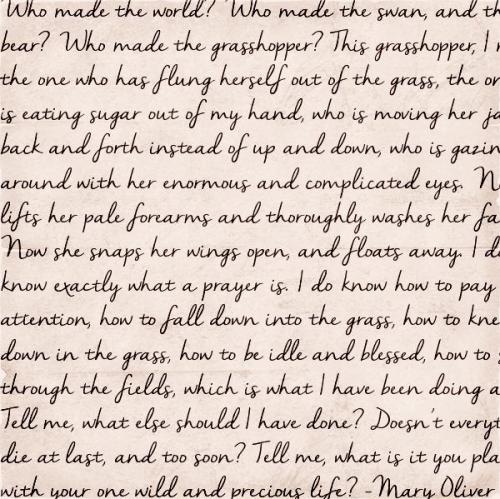 Who made the world? Who made the swan, and th
bear? Who made the grasshopper? This grasshopper, I
the one who has flung herself out of the grass, the on
is eating sugar out of my hand, who is moving her ja
back and forth instead of up and down, who is gazin
around with her enormous and complicated eyes. N
lifts her pale forearms and thoroughly washes her fa
Now she snaps her wings open, and floats away. I do
know exactly what a prayer is. I do know how to pay
attention, how to fall down into the grass, how to kne
down in the grass, how to be idle and blessed, how to s
through the fields, which is what I have been doing a
Tell me, what else should I have done? Doesn't everyt
die at last, and too soon? Tell me, what is it you pla
with your one wild and precious life? -Mary Oliver